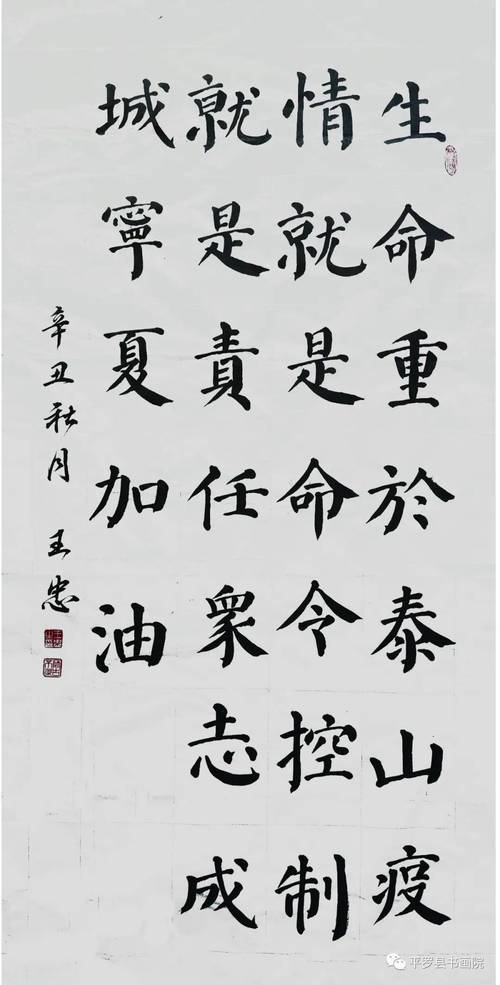 生命重於泰山疫
情就是命令控制
就是責任衆志成
城寧夏加油
辛丑秋月 王忠
平罗县书画院